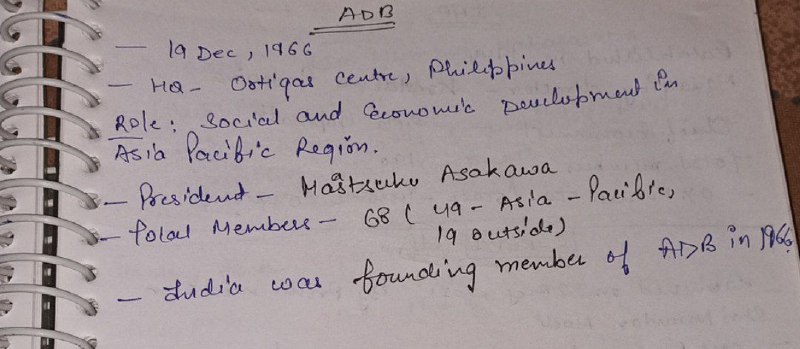 ADB
— 19 Dec, 1966
— HQ - Ortigas Centre, Philippines
Role: Social and Economic Development in
Asia Pacific Region.
— President - Maatsuku Asakawa
— Total Members - 68 ( 49 - Asia - Pacific,
19 outside)
— India was founding member of ADB in 1966.